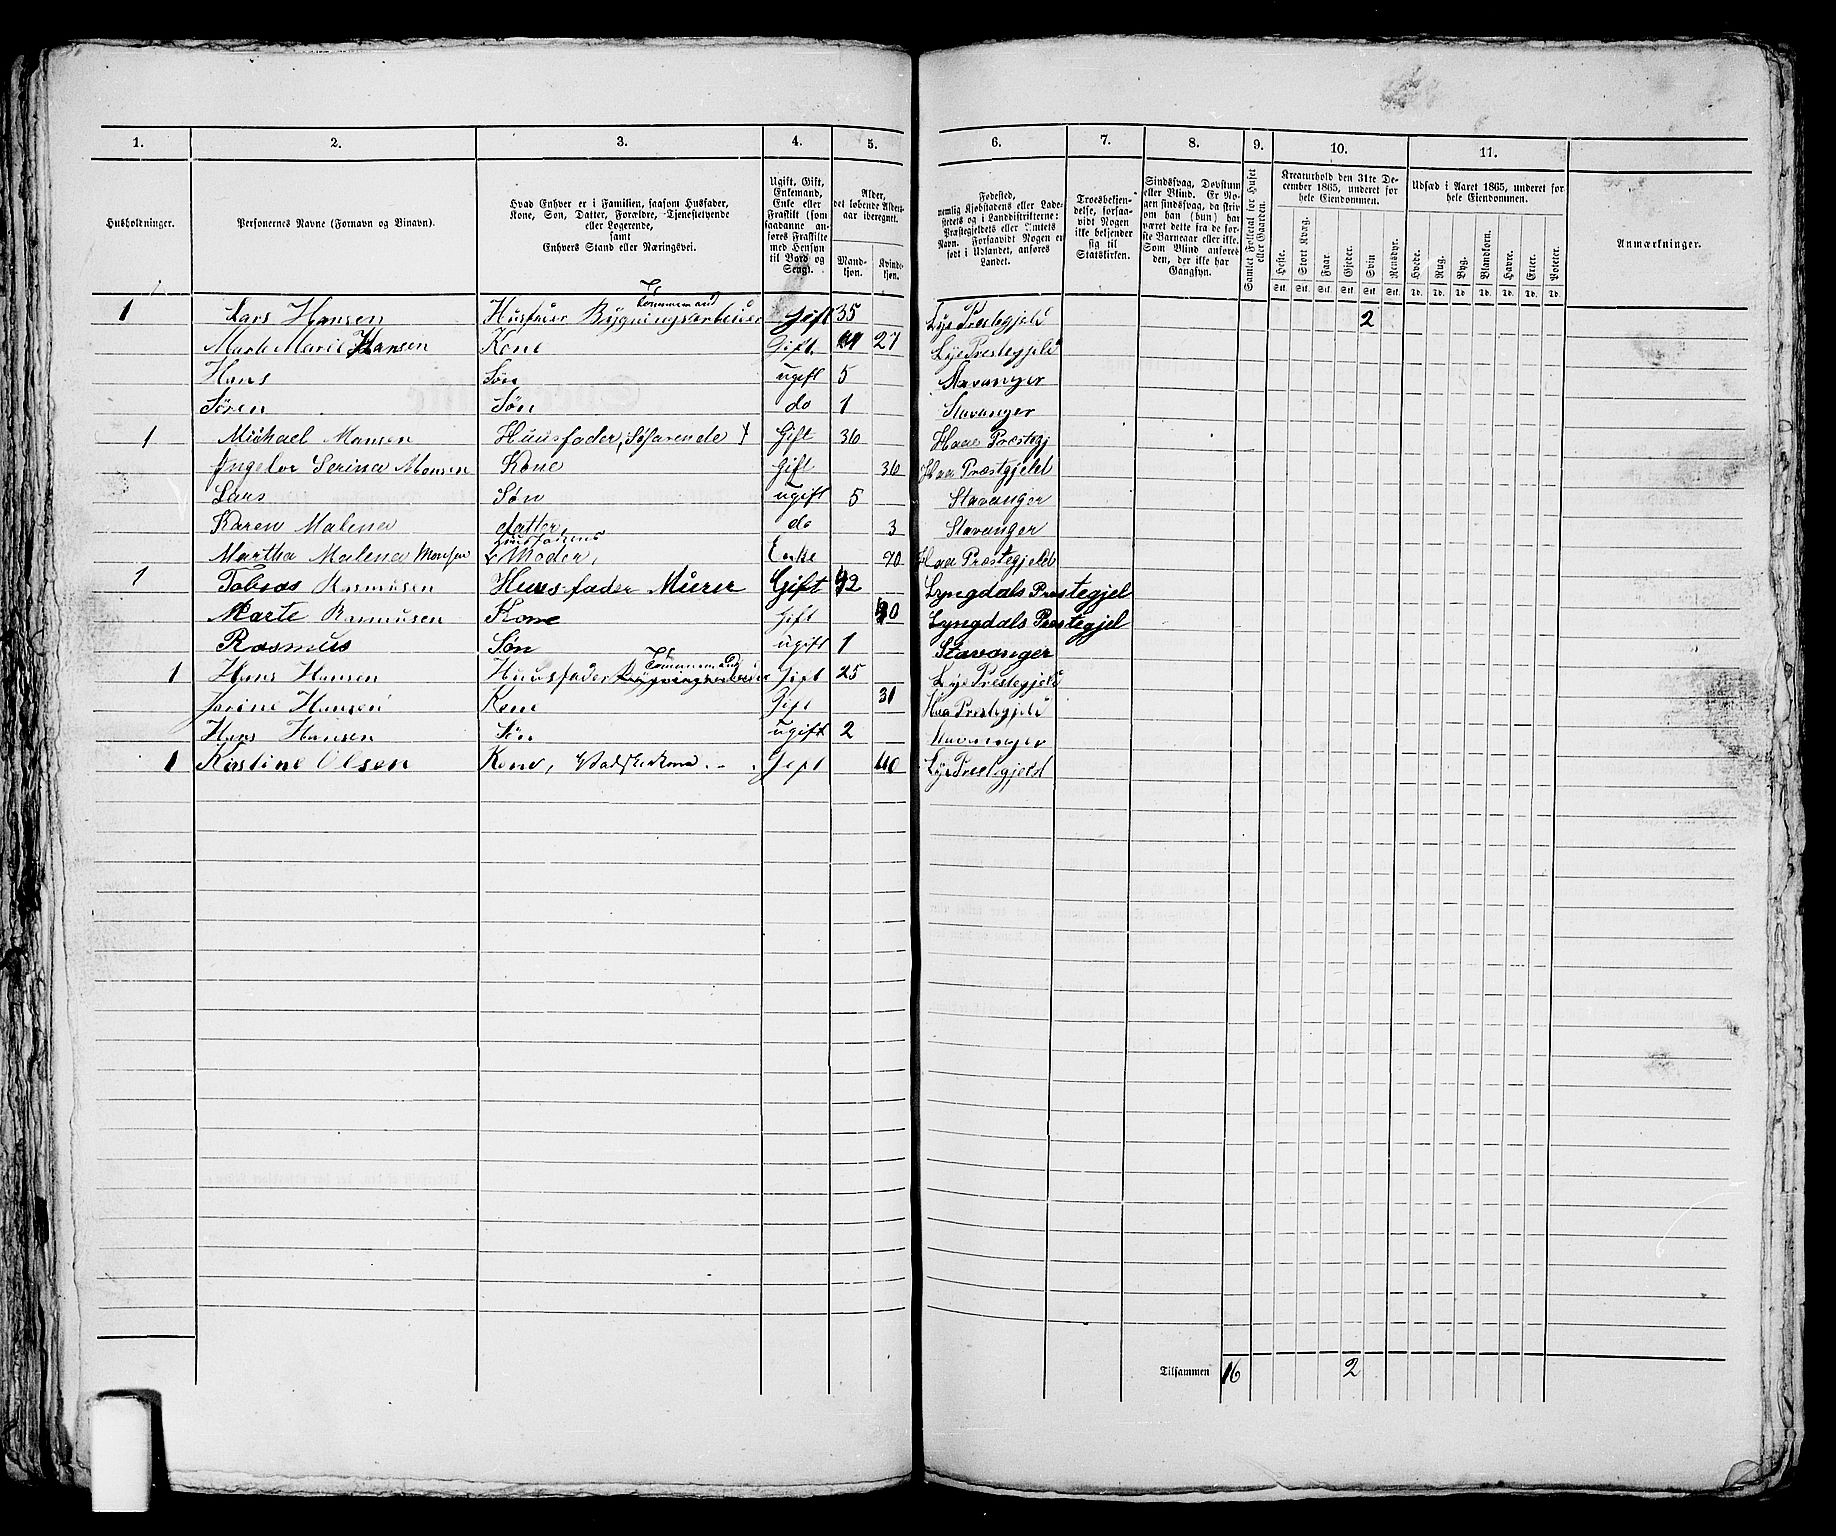 1. 2. 3. 4. 5. 6. 7. 8. 9. 10. 11.
Husholdninger.
Personernes Navne (Fornavn og Binavn).
Hvad Enhver er i Familien, saasom Husfader,
Kone, Søn, Datter, Forældre, Tjenestetyende
eller Logerende,
samt
Enhvers Stand eller Næringsvei.
Ugift, Gift,
Enkemand,
Enke eller
Fraskilt (som
saadanne an-
føres Fraskilte
med Hensyn
til Bord og
Seng).
Alder,
det løbende Alders-
aar iberegnet.
Mand-
kjøn.
Kvind-
kjøn.
Fødested,
nemlig Kjøbstadens eller Lade-
stedets og i Landdistrikterne:
Præstegjeldets eller Amtets
Navn. Forsaavidt Nogen er
født i Udlandet, anføres
Landet.
Troesbekjen-
delse, forsaa-
vidt Nogen
ikke bekjender
sig til
Statskirken.
Sindssvag, Døvstum
eller Blind. Er No-
gen sindssvag, da skriv
om han (hun) har
været dette fra de før-
ste Barneaar eller ikke.
Som Blind anføres
den, der ikke har
Gangsyn.
Samlet Folketal for Huset
eller Gaarden.
Kreaturhold den 31te De-
cember 1865, underet for
hele Eiendommen.
Heste. Stort Kvæg. Faar. Gjeder. Svin Rensdyr.
Stk. Stk. Stk. Stk. Stk. Stk.
Udsæd i Aaret 1865, underet for
hele Eiendommen.
Hvede. Rug. Byg. Blandkorn. Havre. Erter. Poteter.
Td. Td. Td. Td. Td. Td. Td.
Anmærkninger.
1 Lars Hansen Husfader Bygningsarbeider Tømmermand Gift 35 Lye Prestegjeld 2
Marte Marie Hansen Kone Gift. 27 Lye Prestegjeld
Hans Søn ugift 5 Stavanger
Søren Søn do 1 Stavanger
1 Michael Monsen Huusfader, Søfarende Gift 36 Haae Præstegj
Ingebor Serina Monsen Kone gift 36 Haa Præstgjeld
Lars Søn ugift 5 Stavanger
Karen Malena datter, do 3 Stavanger
Martha Malena Monsen Huusfaderens Moder, Enke 70 Haa Præstegjeld
1 Tobias Rasmusen Huusfader Murer Gift 42 Lyngdals Prestegjel
Marte Rasmusen Kone Gift 40 Lyngdals Prestegjel
Rasmus Søn ugift 1 Stavanger
1 Hans Hansen Huusfader Bygningsarbeider Tømmermand Gift 25 Lye Prestegjeld
Jorine Hansen Kone Gift 31 Haa Prestegjeld
Hans Hansen Søn ugift 2 Stavanger
1 Kirstine Olsen Kone, Gift 40 Lye Prestegjeld
Tilsammen 16 2